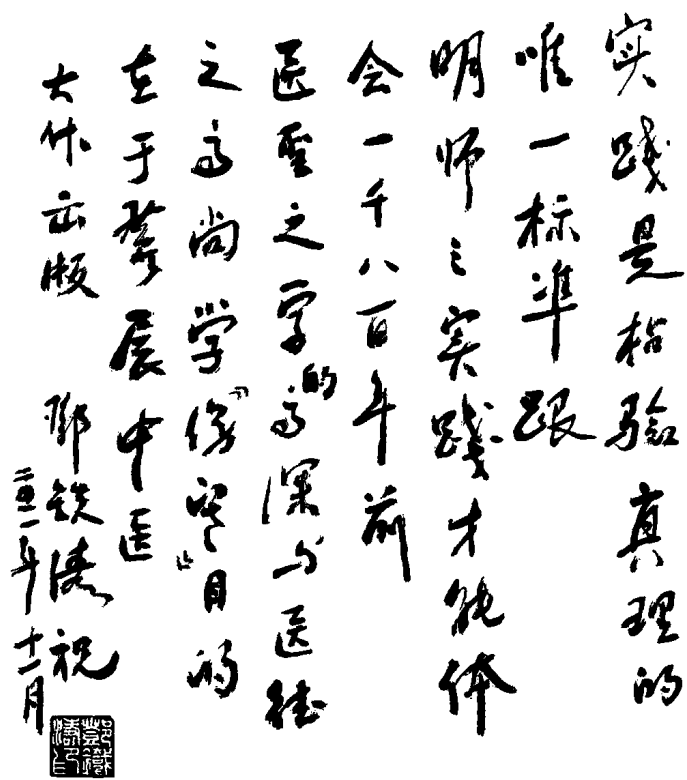 实践是检验真理的
唯一标准跟
明师之实践才能体
会一千八百年前
医圣之字的高深与医德
之高尚学《伤寒》目的
在于發展中医
大作出版 鄧铁涛祝
年十一月
鄧鐵濤印